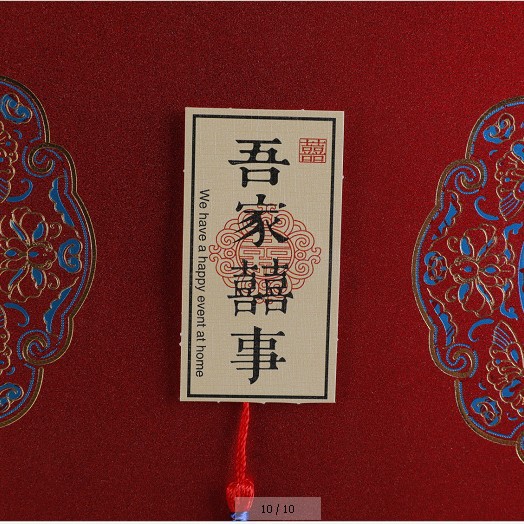 吾家囍事
We have a happy event at home
囍
10 / 10